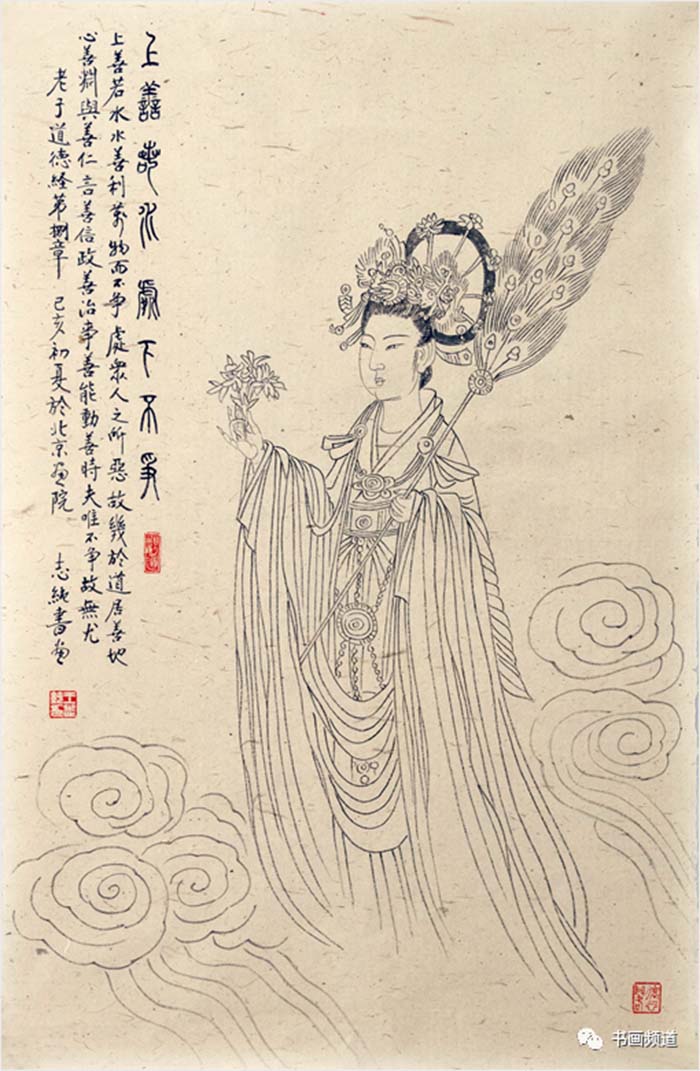 上善若水處下不爭
上善若水水善利萬物而不争處眾人之所惡故幾於道居善地
心善淵與善仁言善信政善治事善能動善時夫唯不争故無尤
老子道德経第捌章 己亥初夏於北京画院 志純書画
书画频道